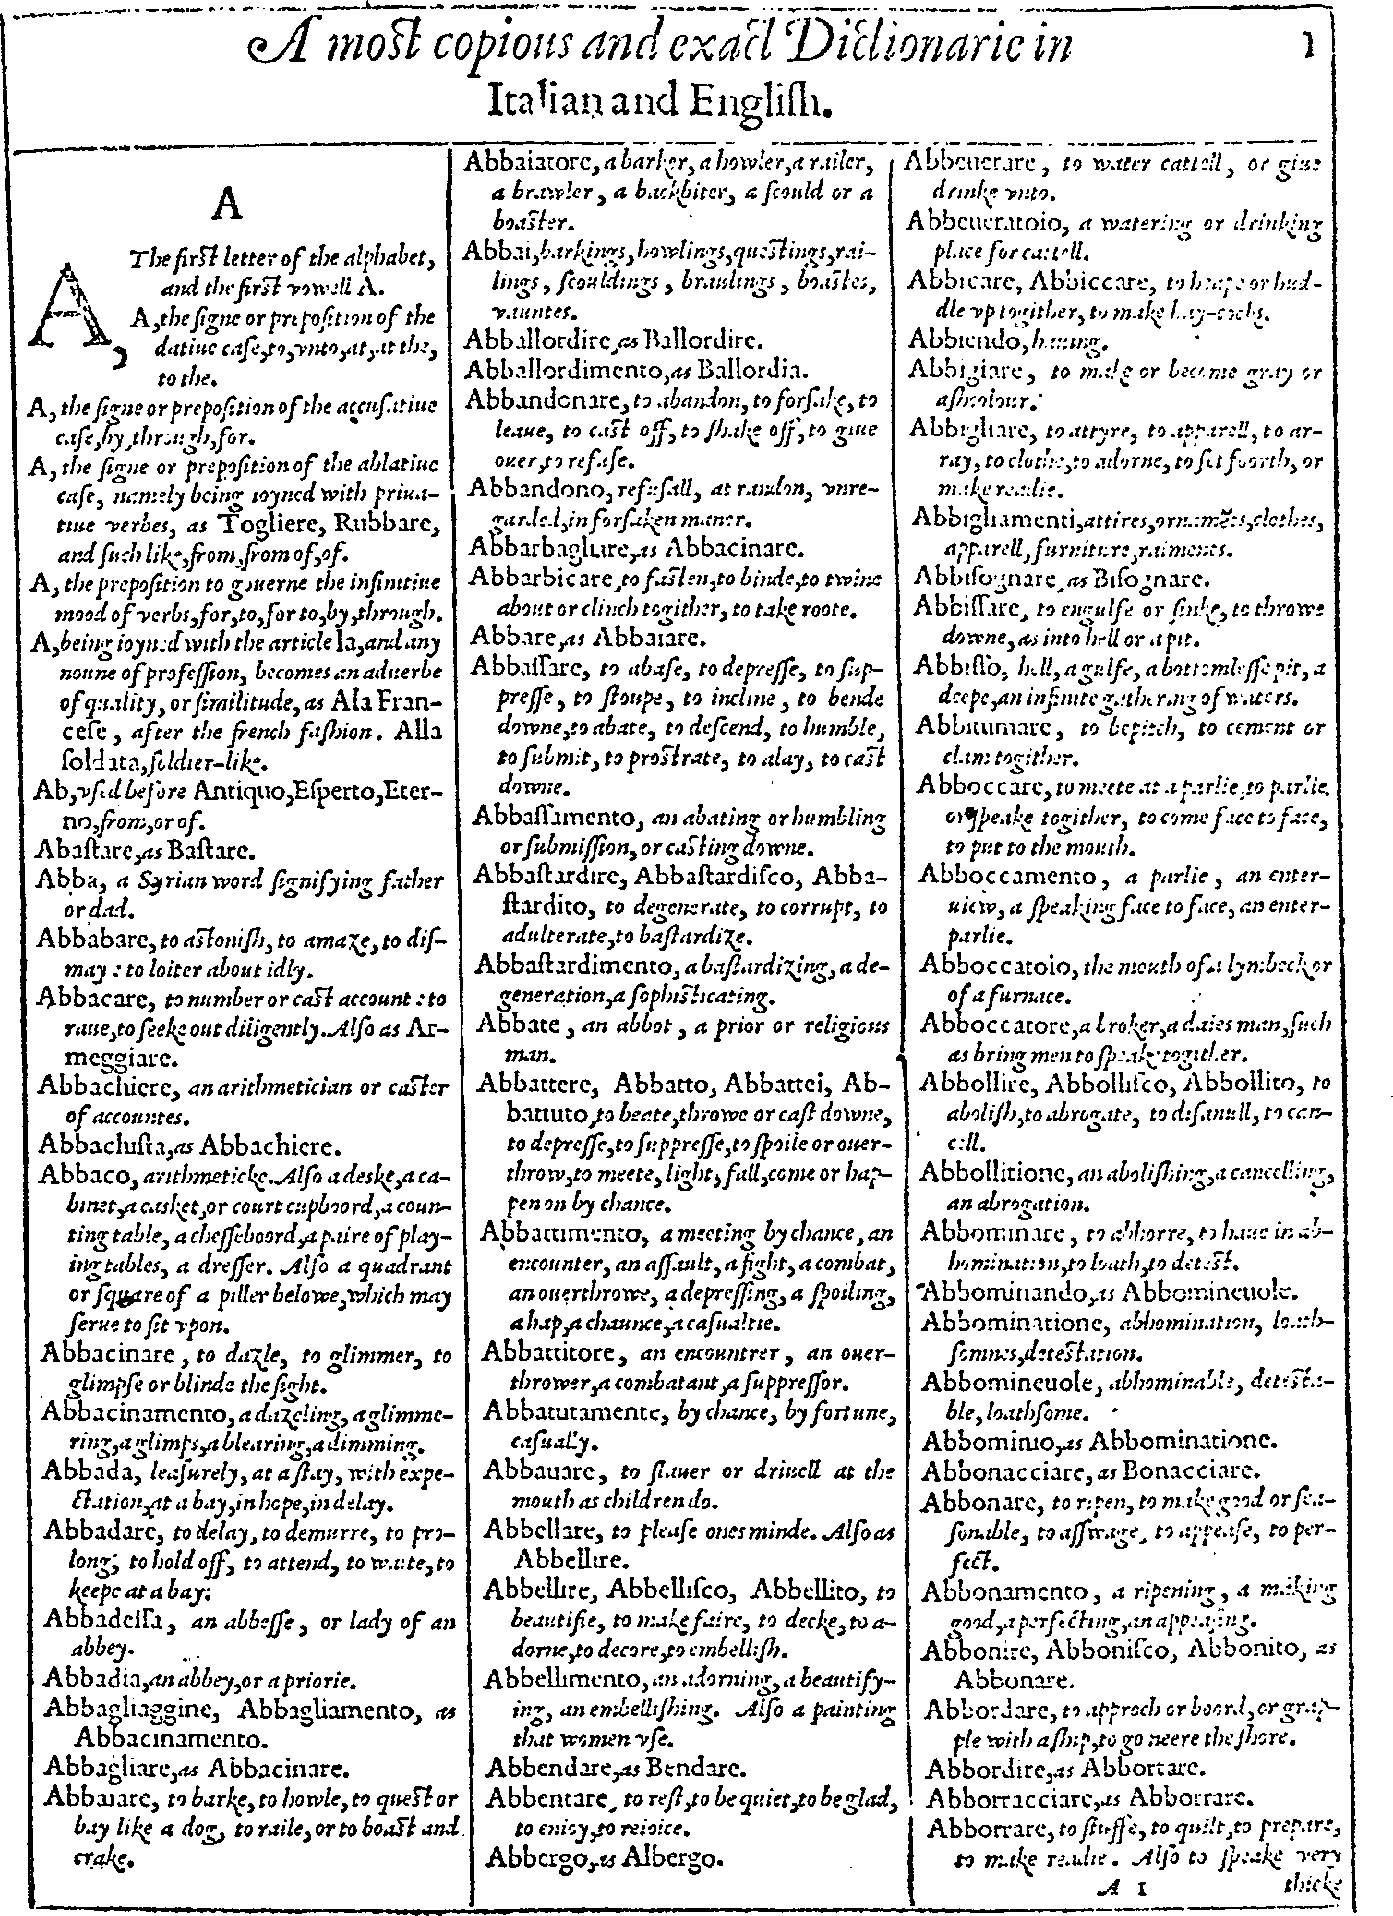 A most copious and exact Dictionarie in
1
Italian and Engliſh.
A
A,
The firſt letter of the alphabet,
and the firſt vowell A.
A, the ſigne or prepoſition of the
datiue caſe, to, vnto, at, at the,
to the.
A, the ſigne or prepoſition of the accuſatiue
caſe, by, through, for.
A, the ſigne or prepoſition of the ablatiue
caſe, namely being ioyned with priua-
tiue verbes, as Togliere, Rubbare,
and ſuch like, from, from of, of.
A, the prepoſition to gouerne the infinitiue
mood of verbs, for, to, for to, by, through.
A, being ioyned with the article la, and any
noune of profeſſion, becomes an aduerbe
of quality, or ſimilitude, as Ala Fran-
ceſe, after the french faſhion. Alla
ſoldata, ſoldier-like.
Ab, vſed before Antiquo, Eſperto, Eter-
no, from, or of.
Abaſtare, as Baſtare.
Abba, a Syrian word ſignifying father
or dad.
Abbabare, to aſtoniſh, to amaze, to diſ-
may : to loiter about idly.
Abbacare, to number or caſt account : to
raue, to ſeeke out diligently. Alſo as Ar-
meggiare.
Abbachiere, an arithmetician or caſter
of accountes.
Abbachiſta, as Abbachiere.
Abbaco, arithmeticke. Alſo a deske, a ca-
binet, a casket, or court cupboord, a coun-
ting table, a cheſſeboord, a paire of play-
ing tables, a dreſſer. Alſo a quadrant
or ſquare of a piller belowe, which may
ſerue to ſit vpon.
Abbacinare, to dazle, to glimmer, to
glimpſe or blinde the ſight.
Abbacinamento, a dazeling, a glimme-
ring, a glimps, a blearing, a dimming.
Abbada, leaſurely, at a ſtay, with expe-
ctation, at a bay, in hope, in delay.
Abbadare, to delay, to demurre, to pro-
long, to hold off, to attend, to waite, to
keepe at a bay.
Abbadeſſa, an abbeſſe, or lady of an
abbey.
Abbadia, an abbey, or a priorie.
Abbagliaggine, Abbagliamento, as
Abbacinamento.
Abbagliare, as Abbacinare.
Abbaiare, to barke, to howle, to queſt or
bay like a dog, to raile, or to boaſt and
crake.
Abbaiatore, a barker, a howler, a railer,
a brawler, a backbiter, a ſcould or a
boaſter.
Abbai, barkings, howlings, queſtings, rai-
lings, ſcouldings, braulings, boaſtes,
vauntes.
Abballordire, as Ballordire.
Abballordimento, as Ballordia.
Abbandonare, to abandon, to forſake, to
leaue, to caſt off, to ſhake off, to giue
ouer, to refuſe.
Abbandono, refuſall, at randon, vnre-
garded, in forſaken maner.
Abbarbagliare, as Abbacinare.
Abbarbicare, to faſten, to binde, to twine
about or clinch togither, to take roote.
Abbare, as Abbaiare.
Abbaſſare, to abaſe, to depreſſe, to ſup-
preſſe, to ſtoupe, to incline, to bende
downe, to abate, to deſcend, to humble,
to ſubmit, to proſtrate, to alay, to caſt
downe.
Abbaſſamento, an abating or humbling
or ſubmiſſion, or caſting downe.
Abbaſtardire, Abbaſtardiſco, Abba-
ſtardito, to degenerate, to corrupt, to
adulterate, to baſtardize.
Abbaſtardimento, a baſtardizing, a de-
generation, a ſophiſticating.
Abbate, an abbot, a prior or religious
man.
Abbattere, Abbatto, Abbattei, Ab-
battuto, to beate, throwe or caſt downe,
to depreſſe, to ſuppreſſe, to ſpoile or ouer-
throw, to meete, light, fall, come or hap-
pen on by chance.
Abbattimento, a meeting by chance, an
encounter, an aſſault, a fight, a combat,
an ouerthrowe, a depreſſing, a ſpoiling,
a hap, a chaunce, a caſualtie.
Abbattitore, an encountrer, an ouer-
thrower, a combatant, a ſuppreſſor.
Abbatutamente, by chance, by fortune,
caſually.
Abbauare, to ſlauer or driuell at the
mouth as children do.
Abbellare, to pleaſe ones minde. Alſo as
Abbellire.
Abbellire, Abbelliſco, Abbellito, to
beautifie, to make faire, to decke, to a-
dorne, to decore, to embelliſh.
Abbellimento, an adorning, a beautify-
ing, an embelliſhing. Alſo a painting
that women vſe.
Abbendare, as Bendare.
Abbentare, to reſt, to be quiet, to be glad,
to enioy, to reioice.
Abbergo, as Albergo.
Abbeuerare, to water cattell, or giue
drinke vnto.
Abbeueratoio, a watering or drinking
place for cattell.
Abbicare, Abbiccare, to heape or hud-
dle vp togither, to make hay-cocks.
Abbiendo, hauing.
Abbigiare, to make or become gray or
aſhcolour.
Abbigliare, to attyre, to apparell, to ar-
ray, to clothe, to adorne, to ſet foorth, or
make readie.
Abbigliamenti, attires, ornamẽts, clothes,
apparell, furniture, raiments.
Abbiſognare, as Biſognare.
Abbiſſare, to engulfe or ſinke, to throwe
downe, as into hell or a pit.
Abbiſſo, hell, a gulfe, a bottomleſſe pit, a
deepe, an infinite gathering of waters.
Abbitumare, to bepitch, to cement or
clam togither.
Abboccare, to meete at a parlie, to parlie,
or ſpeake togither, to come face to face,
to put to the mouth.
Abboccamento, a parlie, an enter-
uiew, a ſpeaking face to face, an enter-
parlie.
Abboccatoio, the mouth of a lymbeck or
of a furnace.
Abboccatore, a broker, a daies man, ſuch
as bring men to ſpeake togither.
Abbollire, Abbolliſco, Abbollito, to
aboliſh, to abrogate, to diſanull, to can-
cell.
Abbollitione, an aboliſhing, a cancelling,
an abrogation.
Abbominare, to abhorre, to haue in ab-
homination, to loath, to deteſt.
Abbominando, as Abbomineuole.
Abbominatione, abhomination, loath-
ſomnes, deteſtation.
Abbomineuole, abhominable, deteſta-
ble, loathſome.
Abbominio, as Abbominatione.
Abbonacciare, as Bonacciare.
Abbonare, to ripen, to make good or ſea-
ſonable, to aſſwage, to appeaſe, to per-
fect.
Abbonamento, a ripening, a making
good, a perfecting, an appeaſing.
Abbonire, Abboniſco, Abbonito, as
Abbonare.
Abbordare, to approch or boord, or grap-
ple with a ſhip, to go neere the ſhore.
Abbordire, as Abbortare.
Abborracciare, as Abborrare.
Abborrare, to ſtuffe, to quilt, to prepare,
to make readie. Alſo to ſpeake very
A 1
thicke